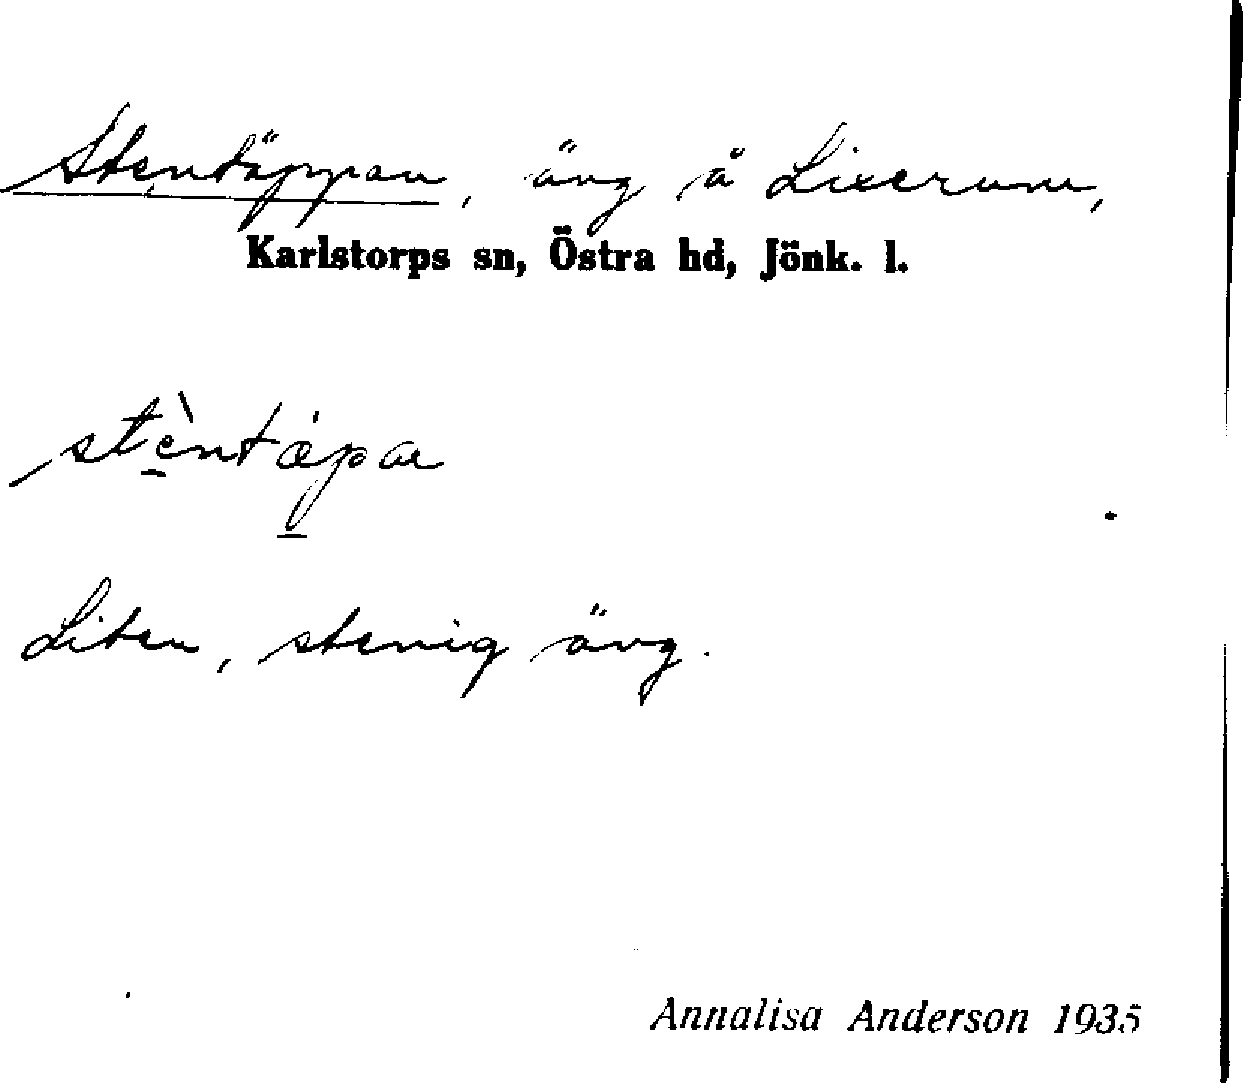 Stentäppan, äng å Lixerum,
Karlstorps sn, Östra hd, Jönk. l.
stèntæ̀pa
Liten, stenig äng.
Annalisa Anderson 1935